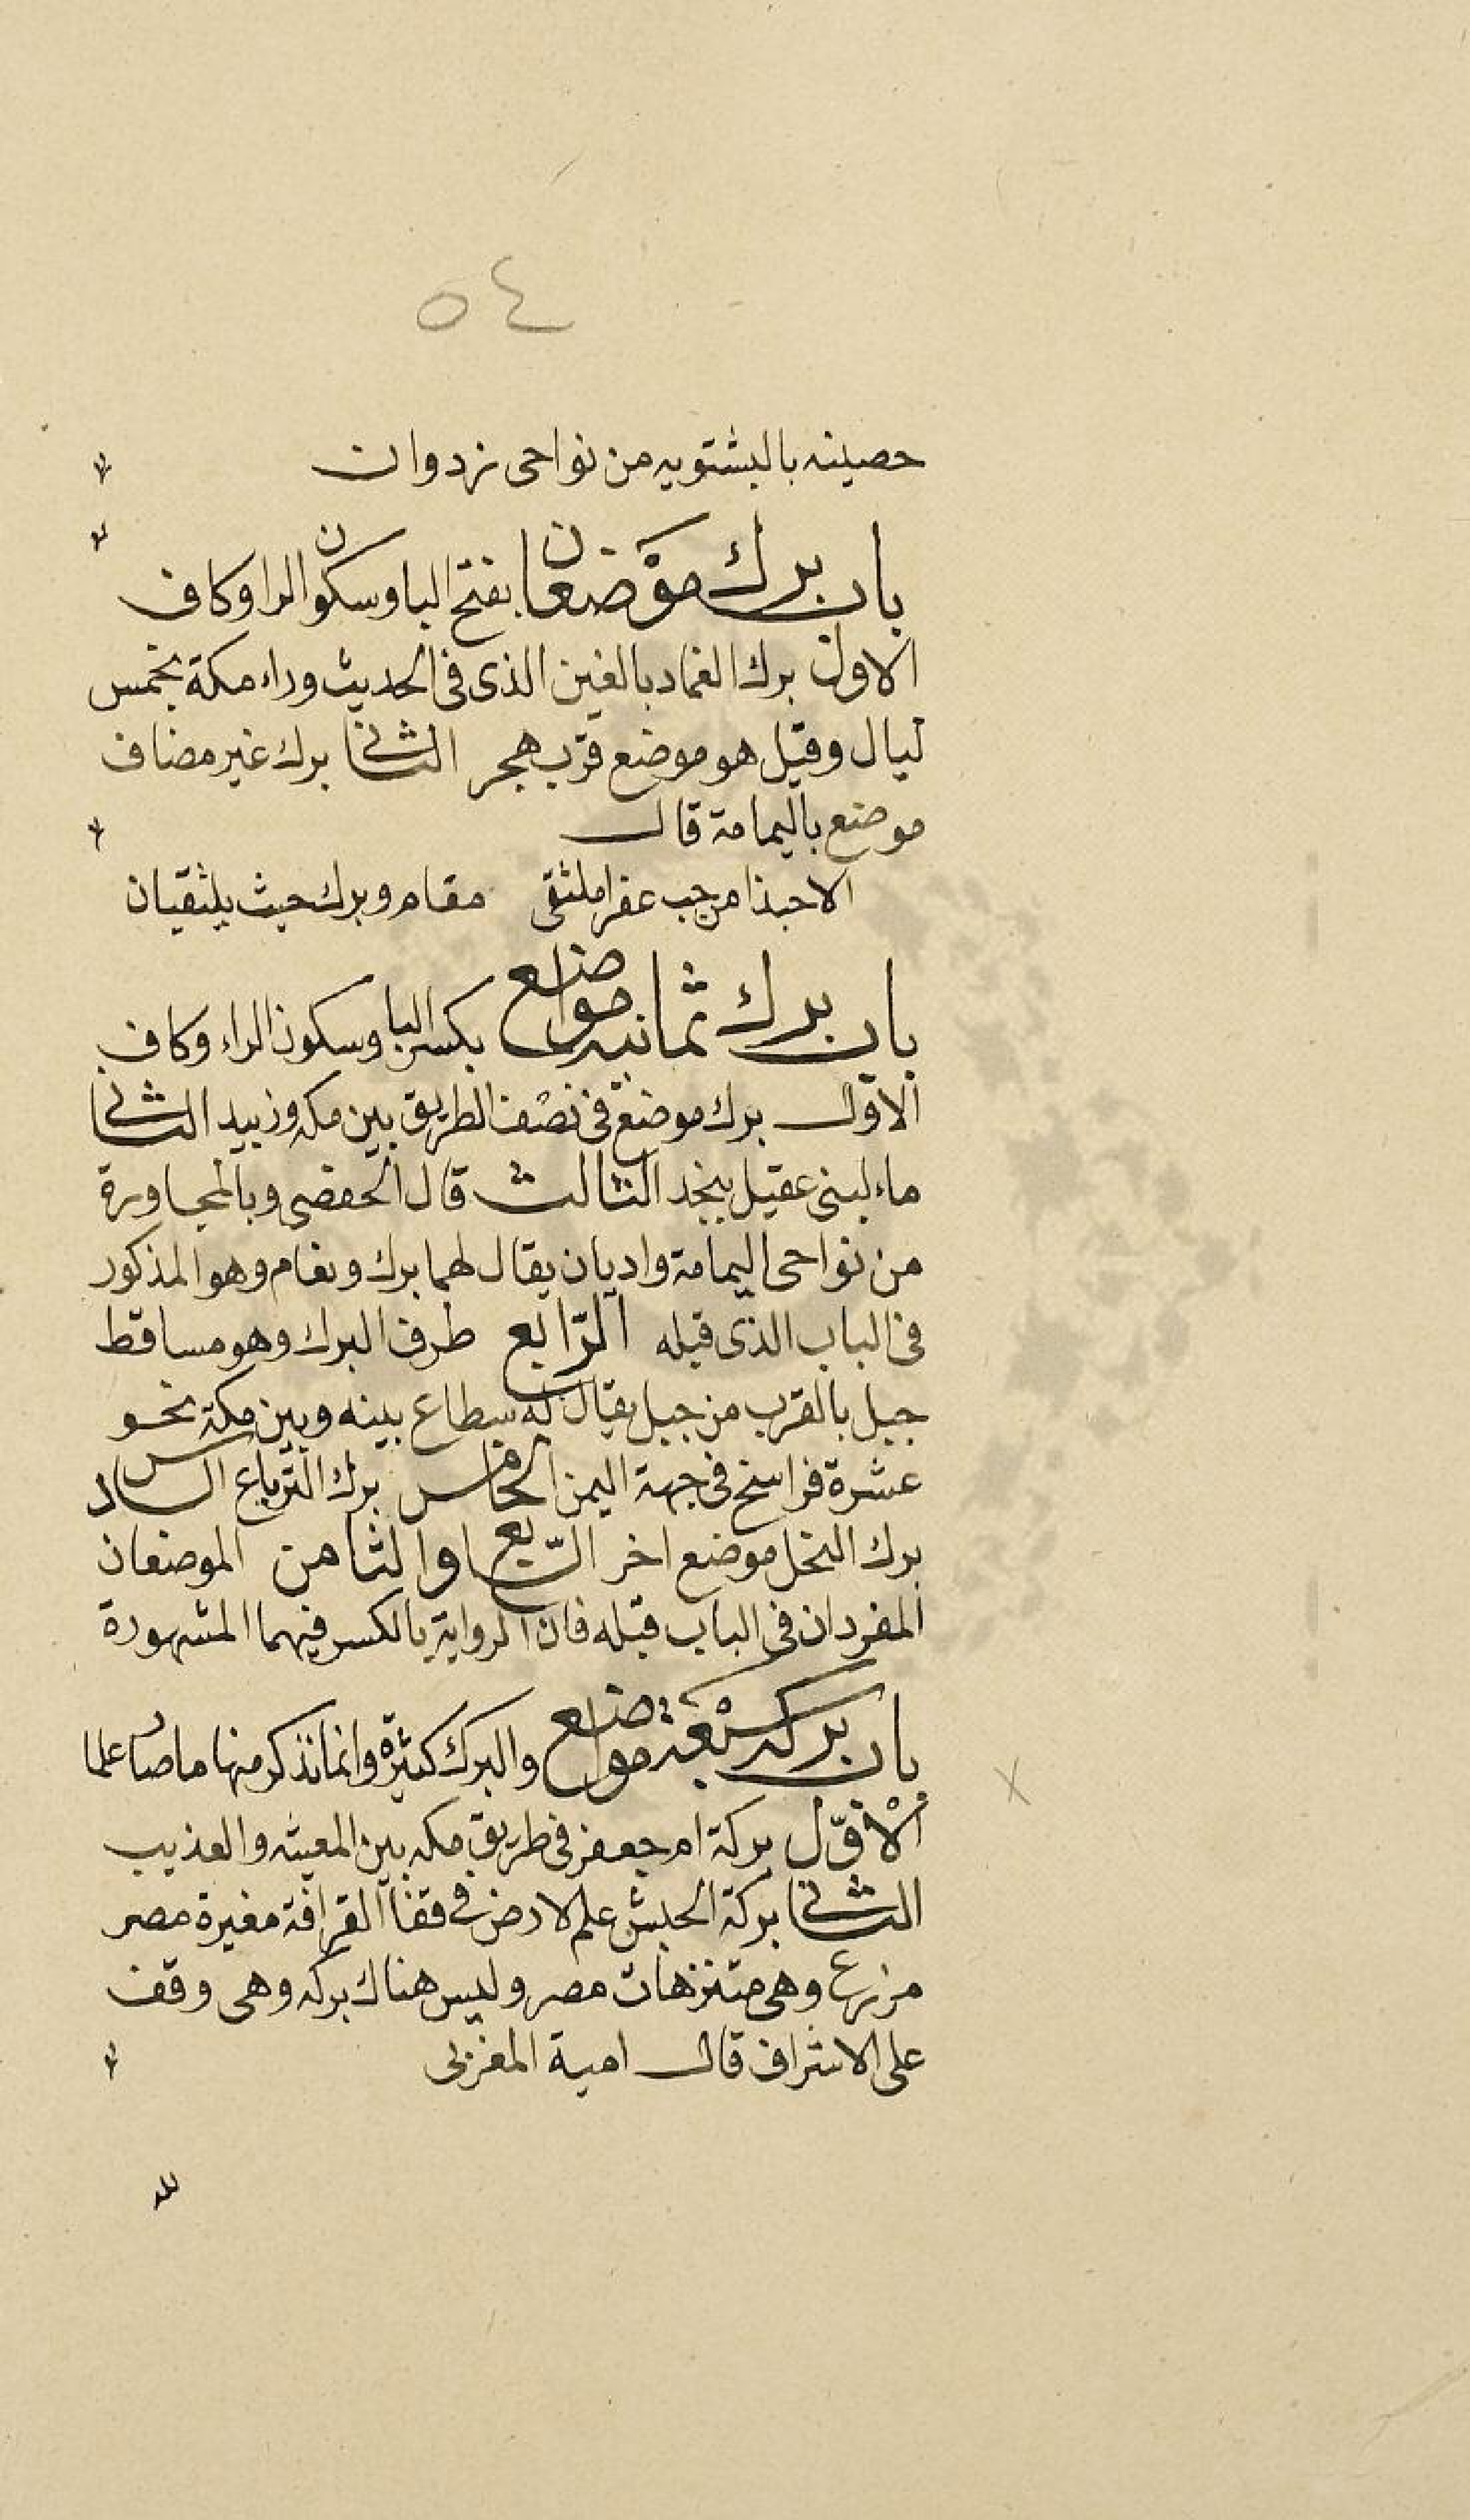 ٥٤
حصينه بالبشتويه من نواحى نزدوان
باب برك موضعان بفتح البا وسكون الرا وكاف
الاول برك الغماد بالغين الذى فى الحديث وراء مكة بخمس
ليال وقيل هو موضع قرب هجر الثانى برك غير مضاف
موضع باليمامة قال
الا حبذا من حب عفرا ملتقى مقام وبرك حيث يلتقيان
باب برك ثمانيه مواضع بكسر البا وسكون الراء وكاف
الاول برك موضع فى نصف الطريق بين مكه وزبيد الثانى
ماء لبنى عقيل بنجد الثالث قال الحفصى وبالمجاورة
من نواحى اليمامة واديان يقال لهما برك ونعام وهو المذكور
فى الباب الذى قبله الرّابع طرف البرك وهو مساقط
جبل بالقرب من جبل يقال له سطاع بينه وبين مكة نحو
عشرة فراسخ فى جهة اليمن الخامس برك الترباع السادس
برك النخل موضع اخر السّابع والثامن الموضعان
المفردان فى الباب قبله فان الرواية بالكسر فيهما المشهورة
باب بركه سبعة مواضع والبرك كثيرة وانما نذكر منها ما صار علما
الأوّل بركة ام جعفر فى طريق مكه بين المغيثه والعذيب
الثانى بركة الحبش علم لارض فى قفا القرافة مغيرة مصر
مزرع وهى متنزهات مصر وليس هناك بركه وهى وقف
على الاشراف قال امية المغربى
لله